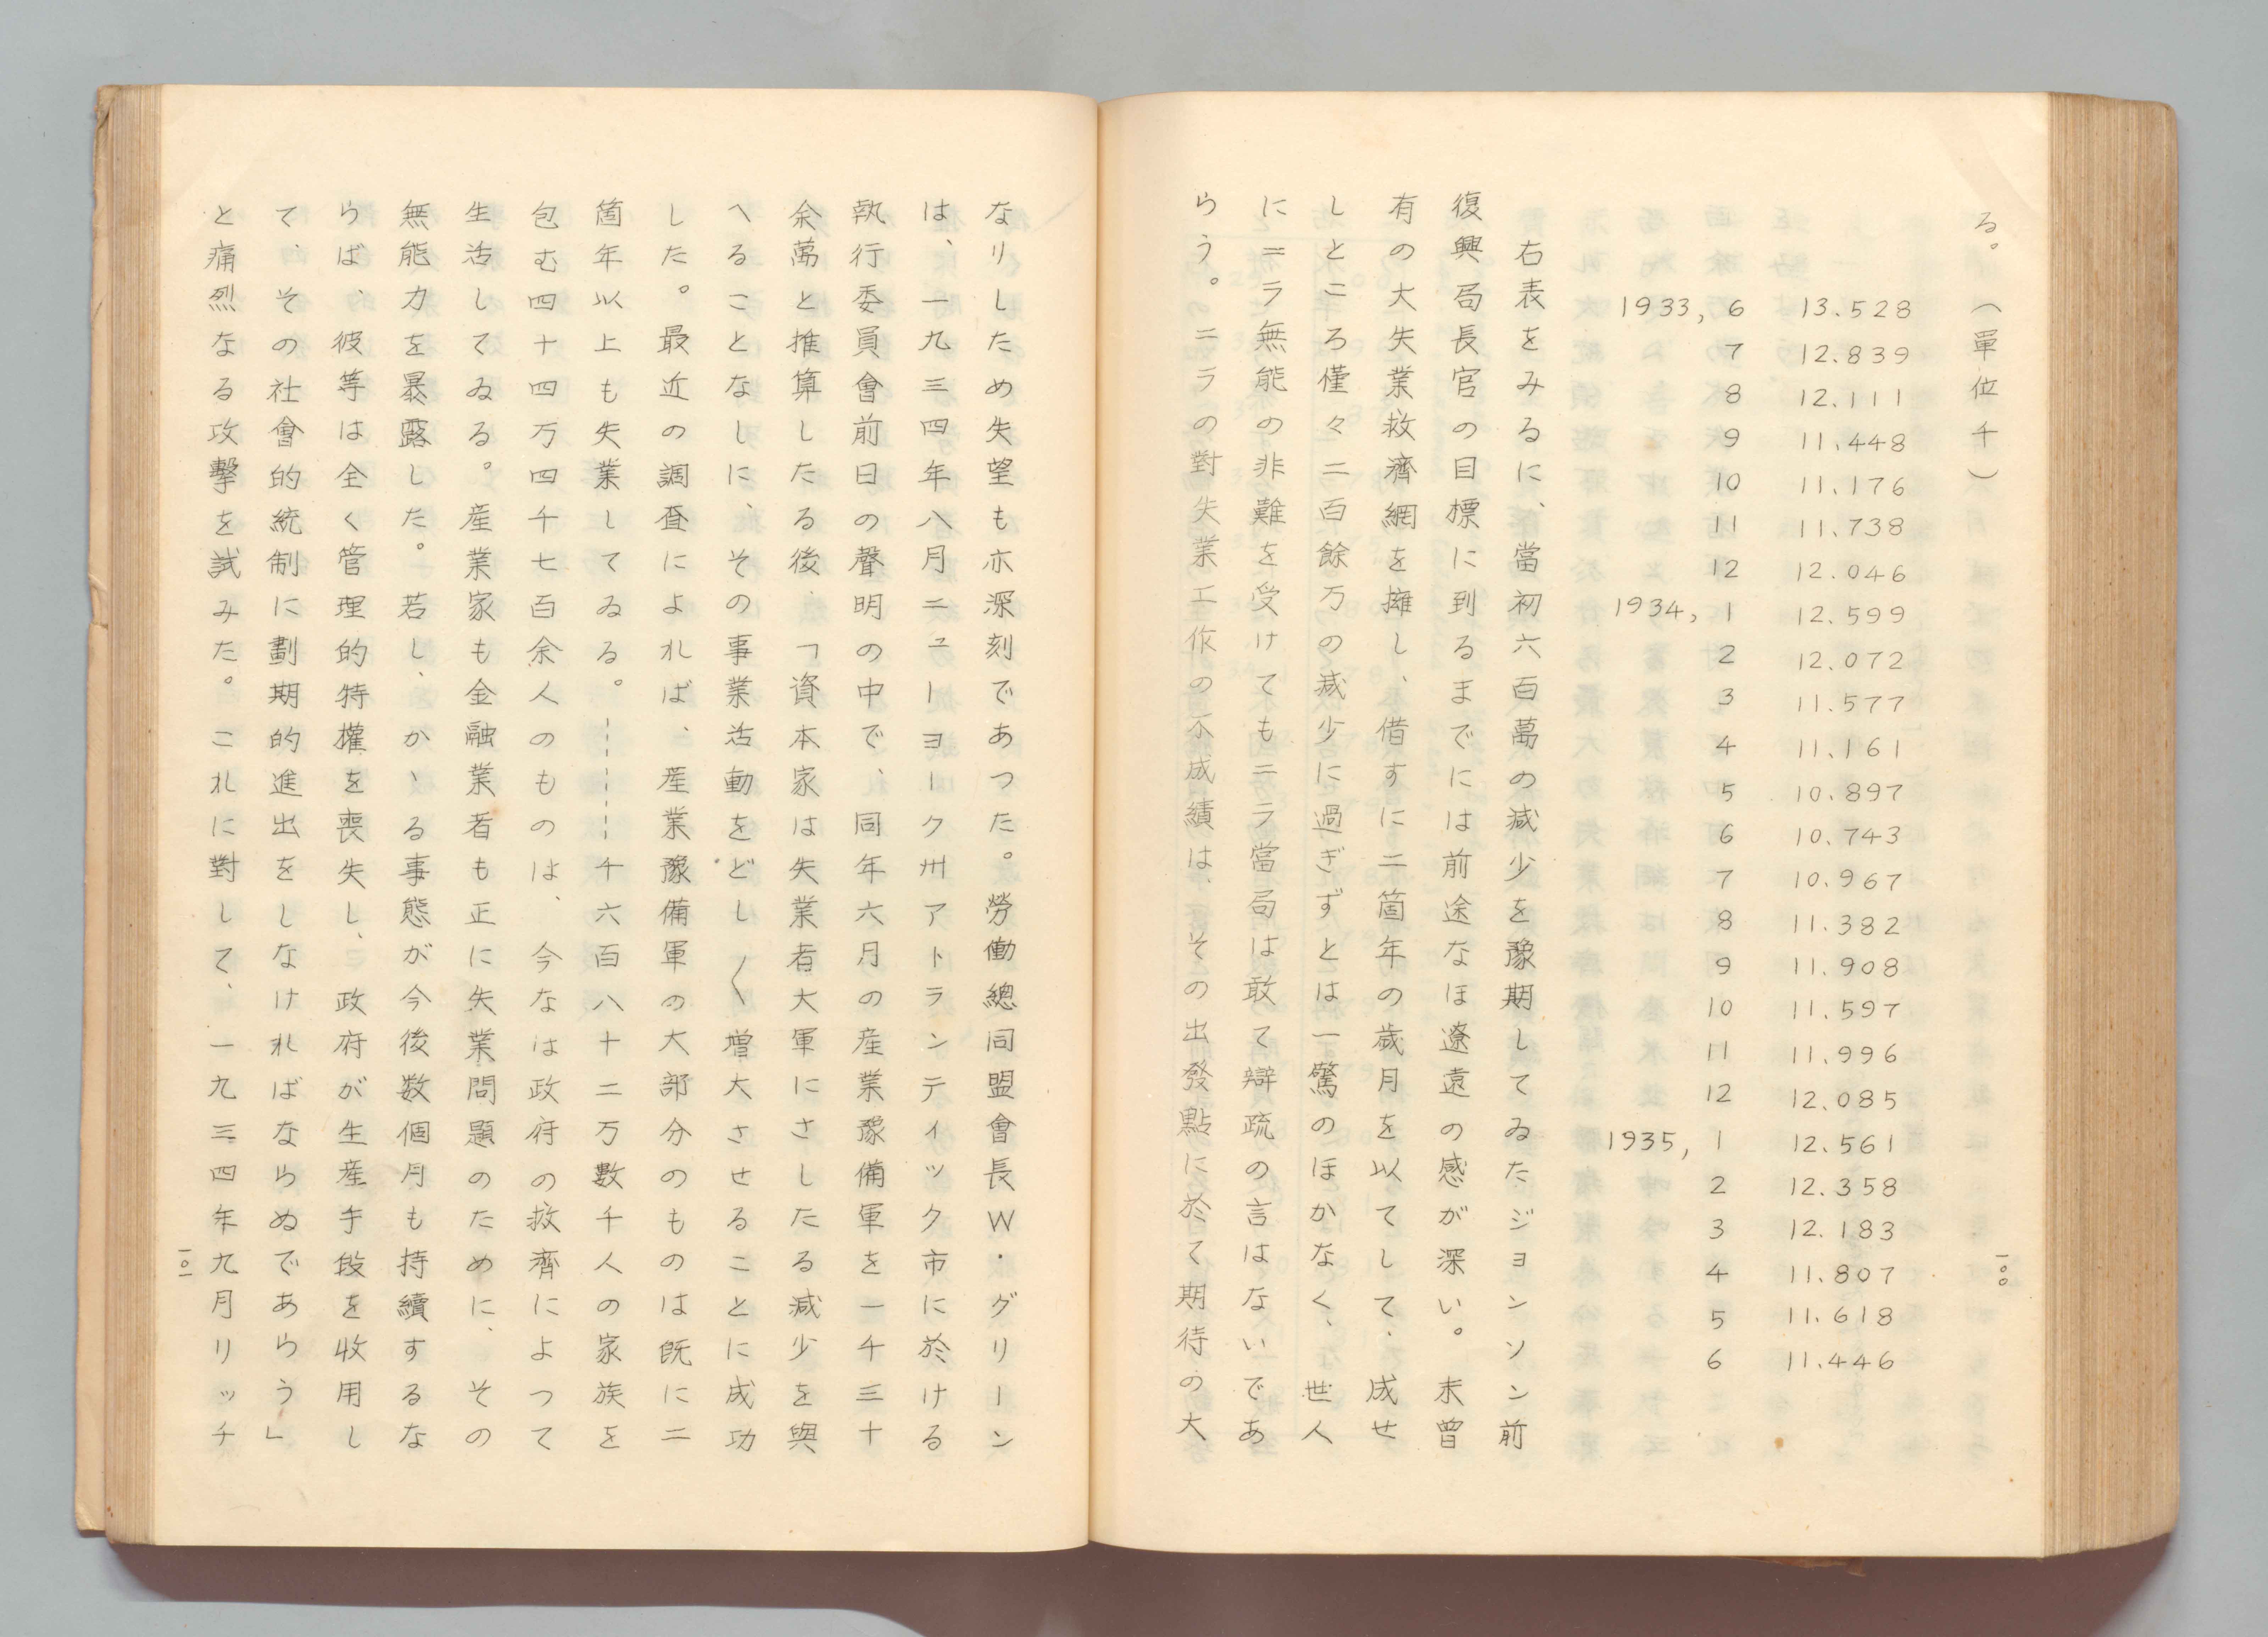 る。（單位千）
1933, 6 13.528
7 12.839
8 12.111
9 11.448
10 11.176
11 11.738
12 12.046
1934, 1 12.599
2 12.072
3 11.577
4 11.161
5 10.897
6 10.743
7 10.967
8 11.382
9 11.908
10 11.597
11 11.996
12 12.085
1935, 1 12.561
2 12.358
3 12.183
4 11.807
5 11.618
6 11.446
右表をみるに、當初六百萬の減少を豫期してゐたジョンソン前
復興局長官の目標に到るまでには前途なほ遼遠の感が深い。未曾
有の大失業救濟網を擁し、借すに二箇年の歳月を以てして、成せ
しところ僅々二百餘万の減少に過ぎずとは一驚のほかなく、世人
にニラ無能の非難を受けてもニラ當局は敢て辯疏の言はないであ
らう。ニラの對失業工作の不成績は、その出發點に於て期待の大
一〇〇
なりしため失望も亦深刻であつた。勞働總同盟會長W・グリーン
は、一九三四年八月ニューヨーク州アトランティック市に於ける
執行委員會前日の聲明の中で、同年六月の産業豫備軍を一千三十
余萬と推算したる後、「資本家は失業者大軍にさしたる減少を與
へることなしに、その事業活動をどし〱増大させることに成功
した。最近の調査によれば、産業豫備軍の大部分のものは既に二
箇年以上も失業してゐる。------千六百八十二万數千人の家族を
包む四十四万四千七百余人のものは、今なは政府の救濟によつて
生活してゐる。産業家も金融業者も正に失業問題のために、その
無能力を暴露した。若し、かゝる事態が今後数個月も持續するな
らば、彼等は全く管理的特權を喪失し、政府が生産手段を收用し
て、その社會的統制に劃期的進出をしなければならぬであらう」
と痛烈なる攻擊を試みた。これに對して、一九三四年九月リッチ
一〇一